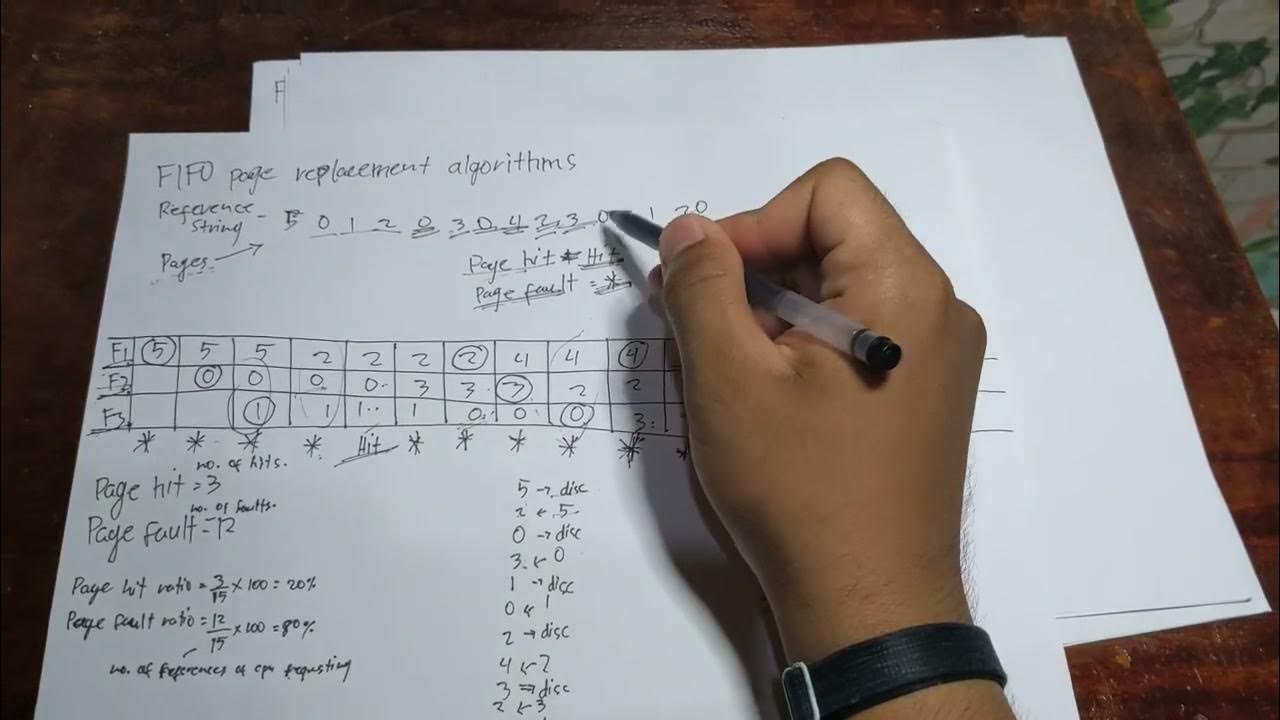 F
FIFO page replacement algorithms
Reference String - 5 0 1 2 0 3 0 4 2 3 0 1 20
Pages →
Page hit Hit
Page fault = *
F1 5 5 5 2 2 2 2 4 4 4
F2 0 0 0 0 3 3 3 2 2
F3 1 1 1 1 0 0 0 3
* * * * Hit * * * * *
no. of hits.
Page hit = 3
no. of faults.
Page fault = 12
Page hit ratio = 3/15 × 100 = 20%
Page fault ratio = 12/15 × 100 = 80%
no. of references of cpu requesting
5 → disc
2 ← 5
0 → disc
3 ← 0
1 → disc
0 ← 1
2 → disc
4 ← 2
3 → disc
2 ← 3